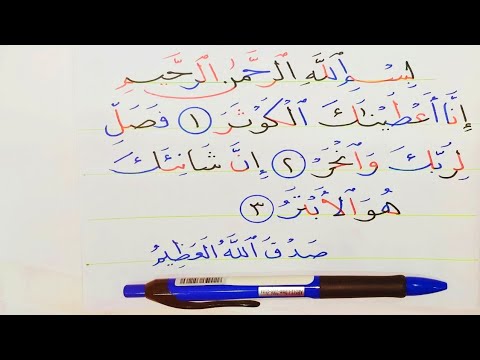 بِسْمِ ٱللَّهِ ٱلرَّحْمَٰنِ ٱلرَّحِيمِ
إِنَّآ أَعْطَيْنَٰكَ ٱلْكَوْثَرَ ١ فَصَلِّ
لِرَبِّكَ وَٱنْحَرْ ٢ إِنَّ شَانِئَكَ
هُوَ ٱلْأَبْتَرُ ٣
صَدَقَ ٱللَّهُ ٱلْعَظِيمُ